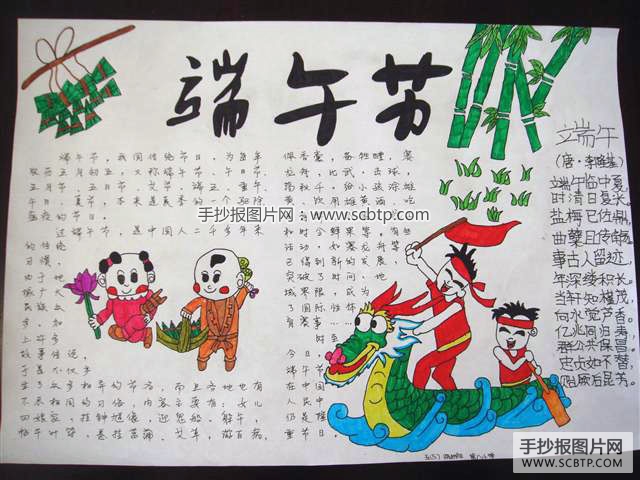 端午节
端午节，我国传统节日，为每年
农历五月初五，又称端阳节、午日节、
五月节、五日节、艾节、端五、重午、
午日、夏节，本来是夏季的一个驱除
瘟疫的节日。
过端午节，是中国人二千多年来
的传统
习惯，
由于地
域广大
民族众
多，加
上许多
故事传说，
于是不仅产
生了众多相异的节名，而且各地也有
不尽相同的习俗。内容主要有：女儿
回娘家，挂钟馗像，迎鬼船、躲午，
帖午叶符，悬挂菖蒲、艾草，游百病，
佩香囊，备牲醴，赛
龙舟，比武，击球，
荡秋千，给小孩涂雄
黄，饮用雄黄酒，吃
和时令鲜果等，有些
活动，如赛龙舟等，
已得到新的发展，
突破了时间、地
域界限，成为
了国际性体
育赛事……
时至
今日，
端午节
在中国
人民中
仍是隆
重节日。
端午
（唐·李隆基）
端午临中夏，
时清日复长。
盐梅已佐鼎，
曲糵且传觞。
事古人留迹，
年深缕积长。
当轩知槿茂，
向水觉芦香。
亿兆同归寿，
群公共保昌。
忠贞如不替，
贻厥后昆芳。
手抄报图片网：www.scbtp.com
手抄报图片网
WWW.SCBTP.COM